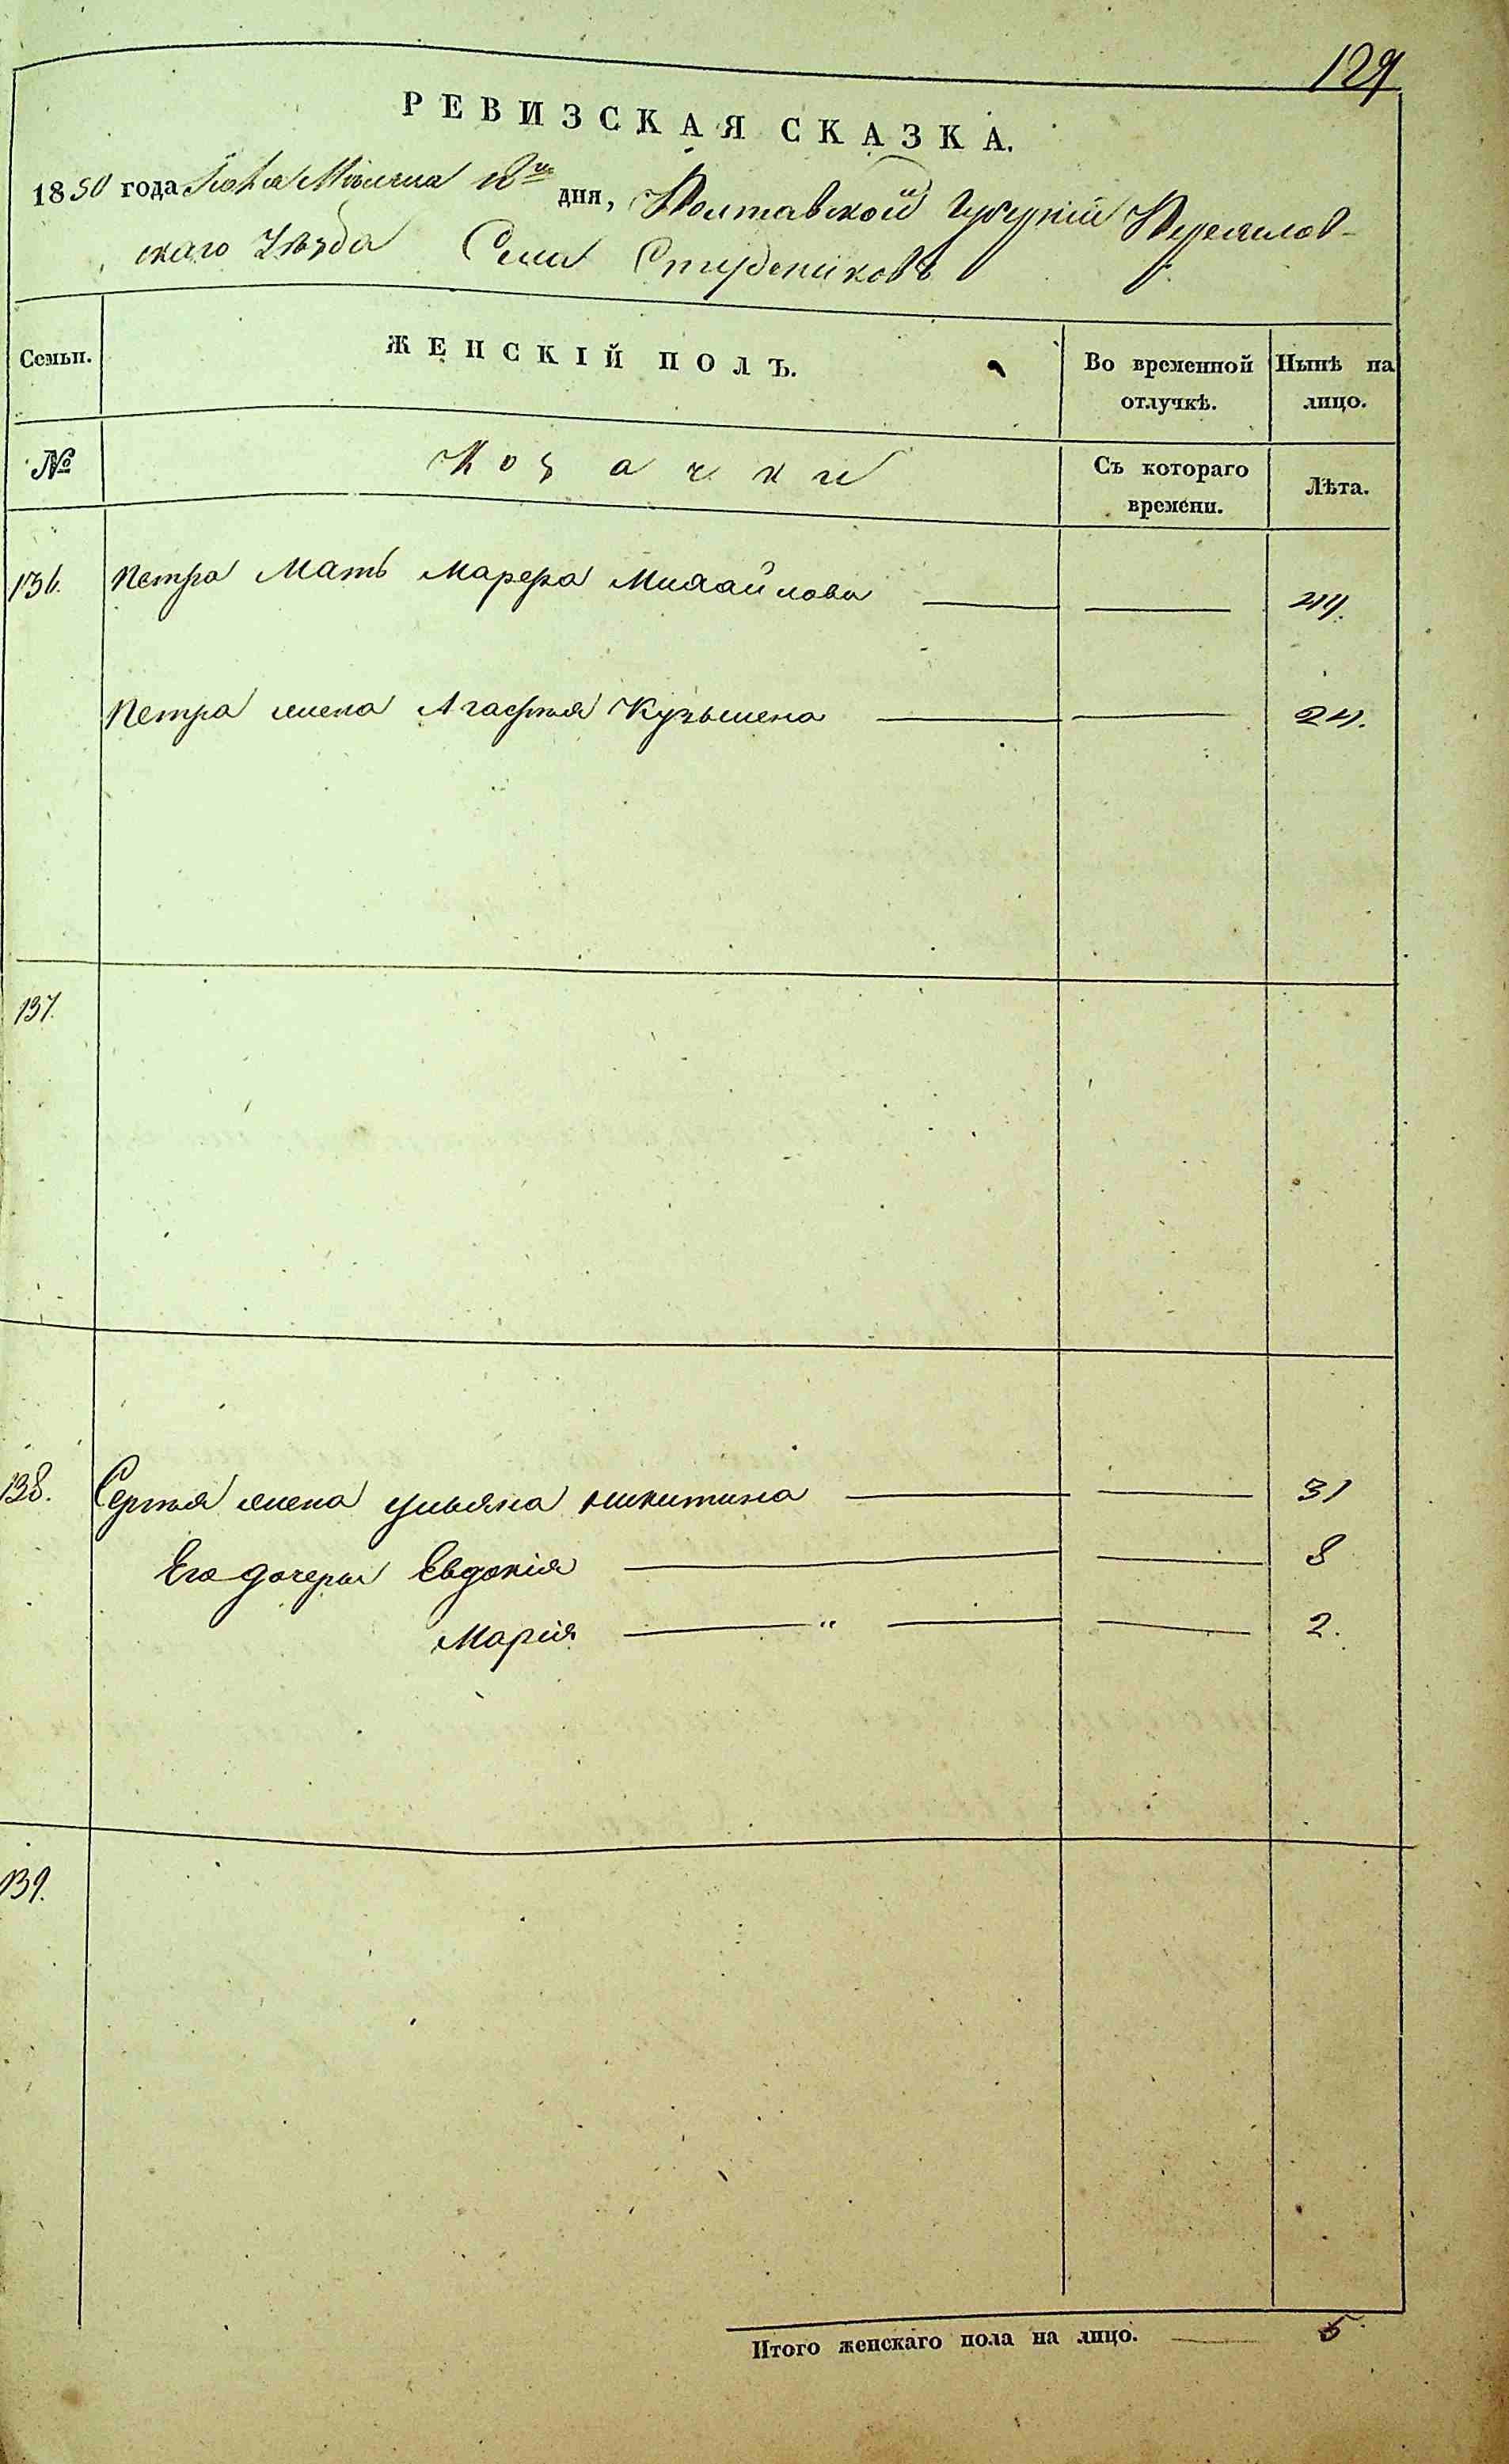 129
РЕВИЗСКАЯ СКАЗКА.
1850 года Мѣсяца дня, Полтавской Губерніи Переяслов-
скаго Уѣзда Села Студениковъ
Семьи. ЖЕНСКІЙ ПОЛЪ. Во временной отлучкѣ. Нынѣ на лицо.
№ Козачки Съ котораго времени. Лѣта.
136. Петра Мать Марфа Михайлова
Петра жена Агафья Кузьмена 24.
137.
138. Сергѣя жена Ульяна Никитина 31
Его дочеры Евдокія 8
Марія " 2.
139.
Итого женскаго пола на лицо. 5.